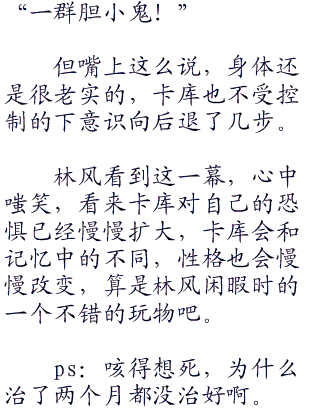 “一群胆小鬼！”
但嘴上这么说，身体还
是很老实的，卡库也不受控
制的下意识向后退了几步。
林风看到这一幕，心中
嗤笑，看来卡库对自己的恐
惧已经慢慢扩大，卡库会和
记忆中的不同，性格也会慢
慢改变，算是林风闲暇时的
一个不错的玩物吧。
ps：咳得想死，为什么
治了两个月都没治好啊。